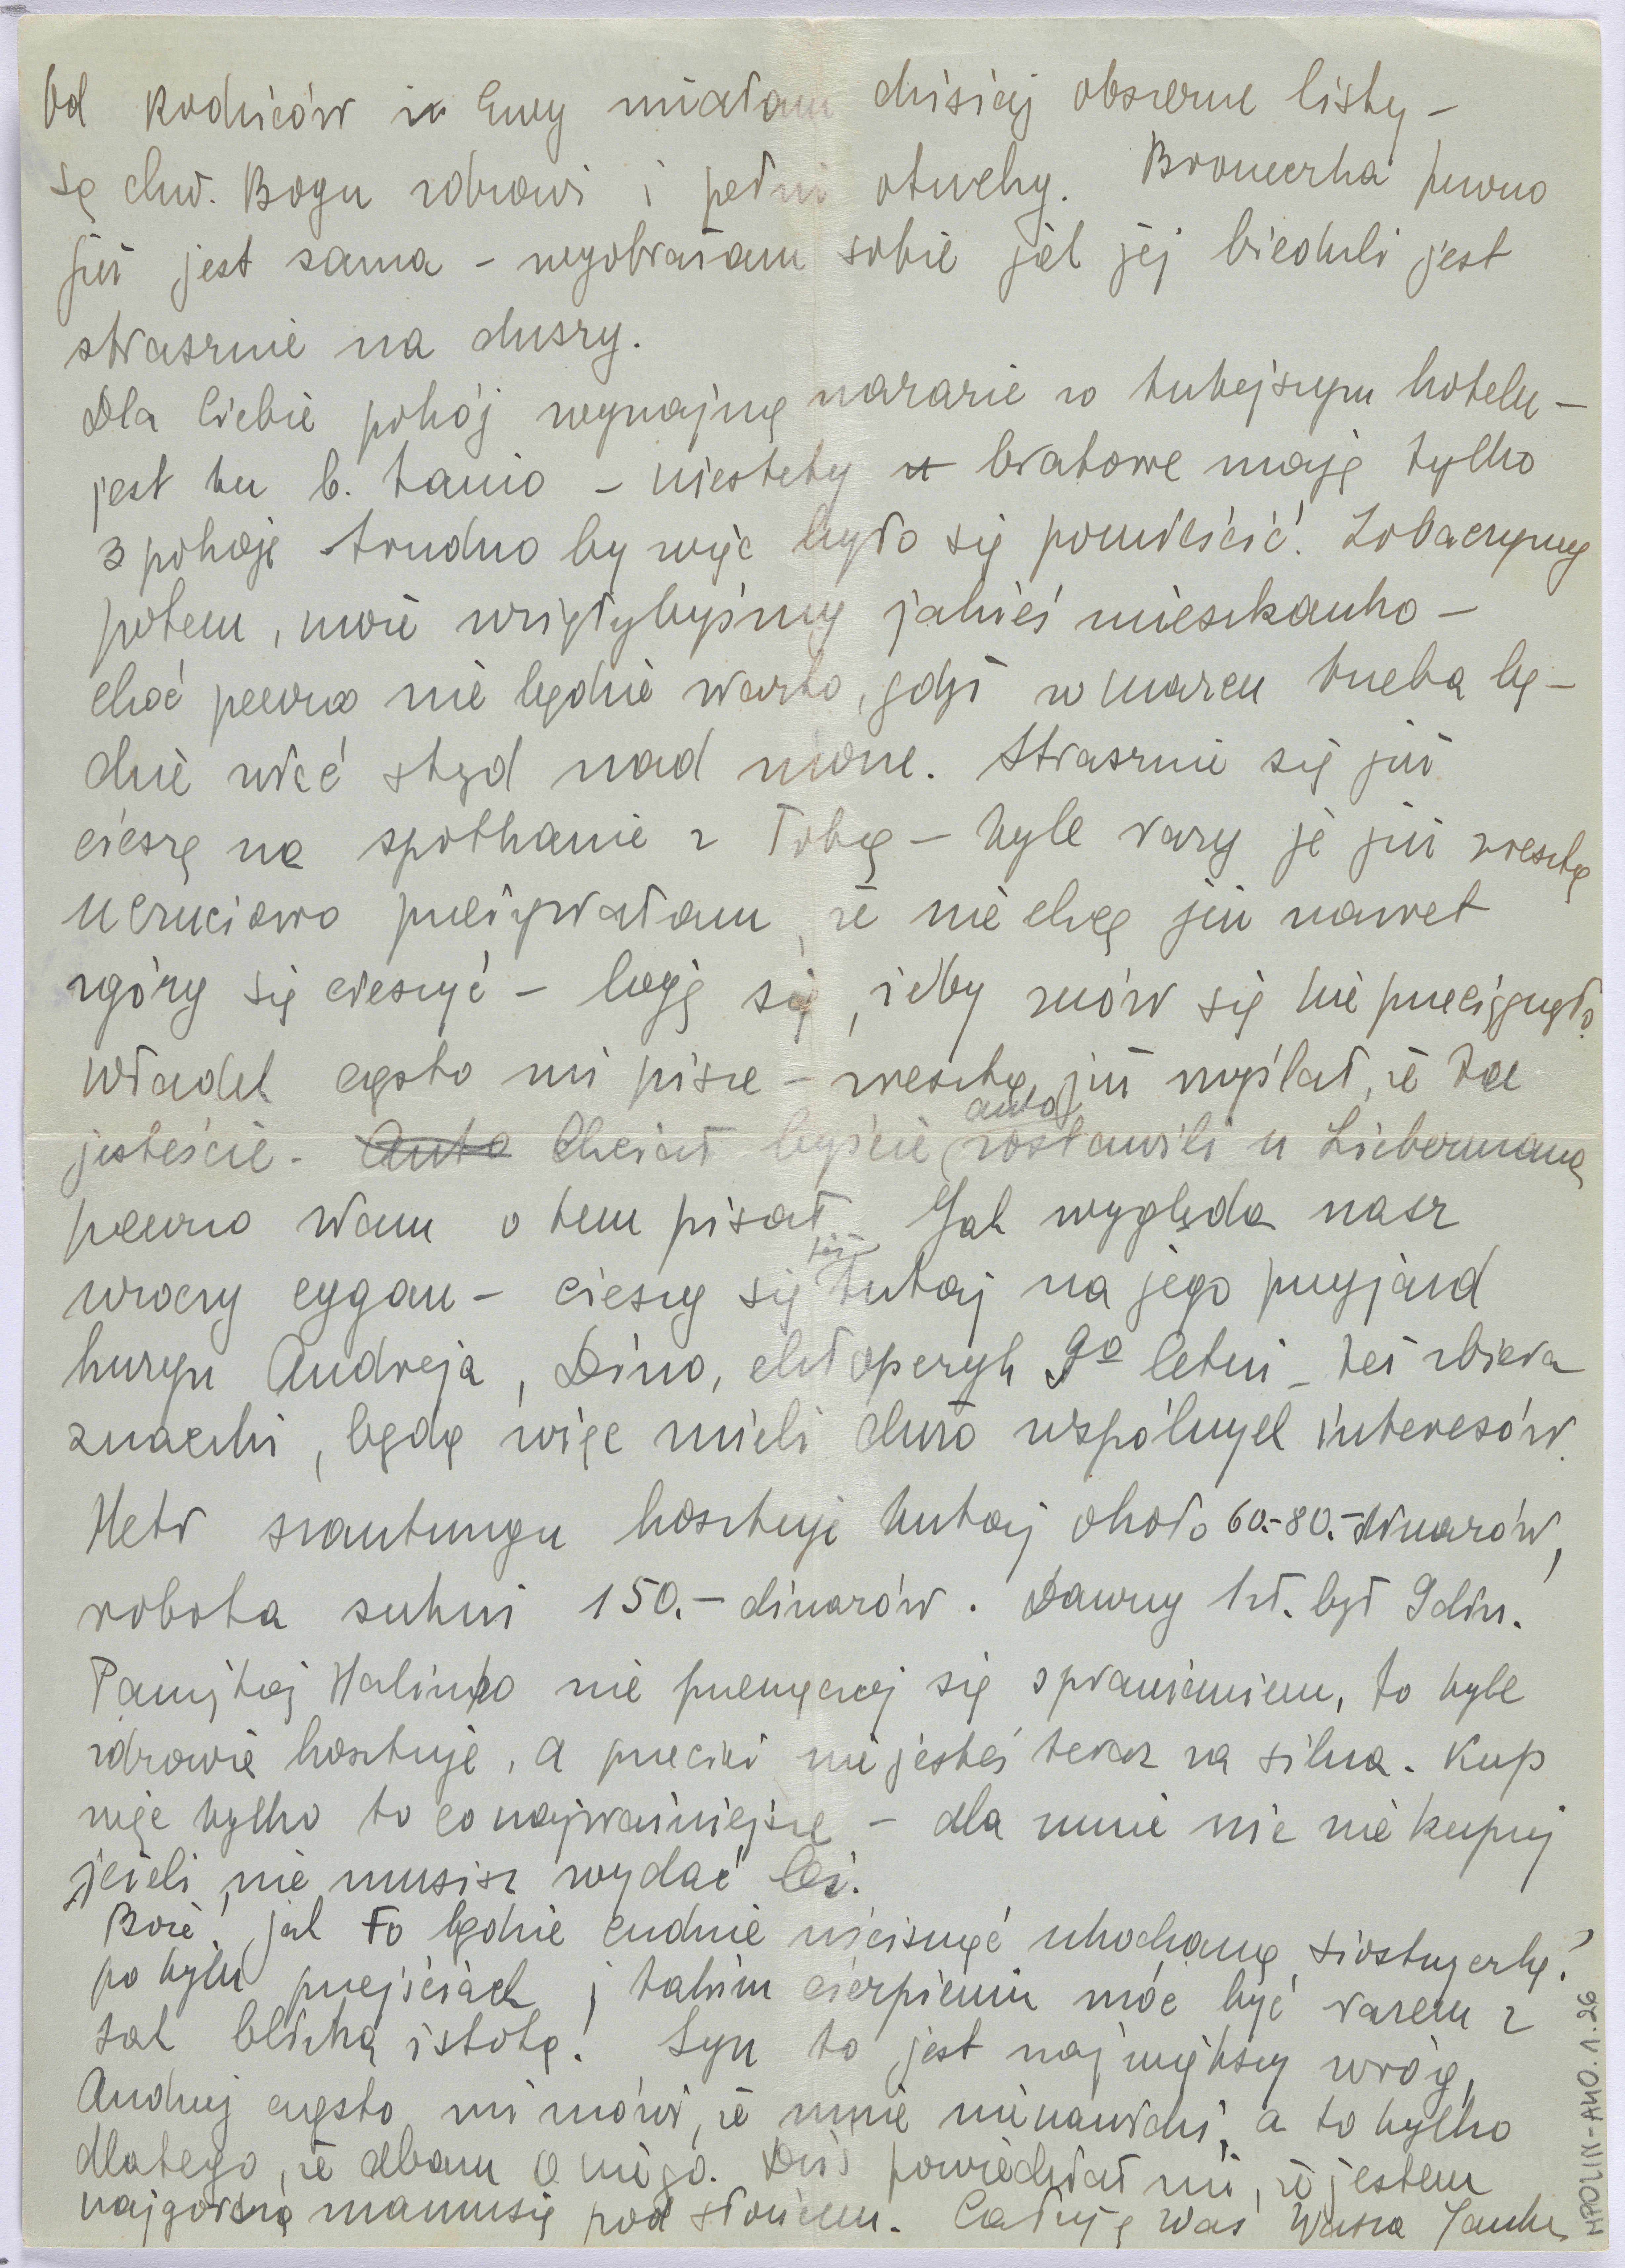 Od Rodziców i Ewy miałam dzisiaj obszerne listy -
są chw. Bogu zdrowi i pełni otuchy. Broneczka pewno
już jest sama - wyobrażam sobie jak jej bieduli jest
strasznie na duszy.
Dla Ciebie pokój wynajmę narazie w tutejszym hotelu -
jest tu b. tanio - niestety bratowe mają tylko
3 pokoje trudno by więc było się pomieścić. Zobaczymy
potem, może wzięłybyśmy jakieś mieszkanko -
choć pewno nie będzie warto, gdyż w marcu trzeba bę-
dzie wiać stąd nad morze. Strasznie się już
cieszę na spotkanie z Tobą - tyle razy je już zresztą
uczuciowo przeżywałam, że nie chcę już nawet
zgóry się cieszyć - boję się, żeby znów się nie przeciągnęło.
Władek często mi pisze - zresztą już myślał, że tu
jesteście. Auto Chciał byście auto zostawili u Liebermana
pewno Wam o tem pisał. Jak wygląda nasz
uroczy cygan - cieszy się już tutaj na jego przyjazd
kuzyn Andrzeja, Dino, chłopczyk 9o letni - też zbiera
znaczki, będą więc mieli dużo wspólnych interesów.
Metr szantungu kosztuje tutaj około 60.-80.- dinarów,
robota sukni 150.- dinarów. Dawny 1 zł. był 9 din.
Pamiętaj Halinko nie przemęczaj się sprawianiem, to tyle
zdrowia kosztuje, a przecież nie jesteś teraz za silna. Kup
więc tylko to co najważniejsze - dla mnie nic nie kupuj
jeżeli nie musisz wydać lei.
Boże, jak to będzie cudnie uścisnąć ukochaną siostrzyczkę!
po tylu przejściach i takim cierpieniu móc być razem z
tak bliską istotą! Syn to jest największy wróg,
Andrzej często mi mówi, że mnie nienawidzi, a to tylko
dlatego, że dbam o niego. Dziś powiedział mi, że jestem
najgorszą mamusią pod słońcem. Całuję Was Wasza Janka
MPOLIN-A40.1.26